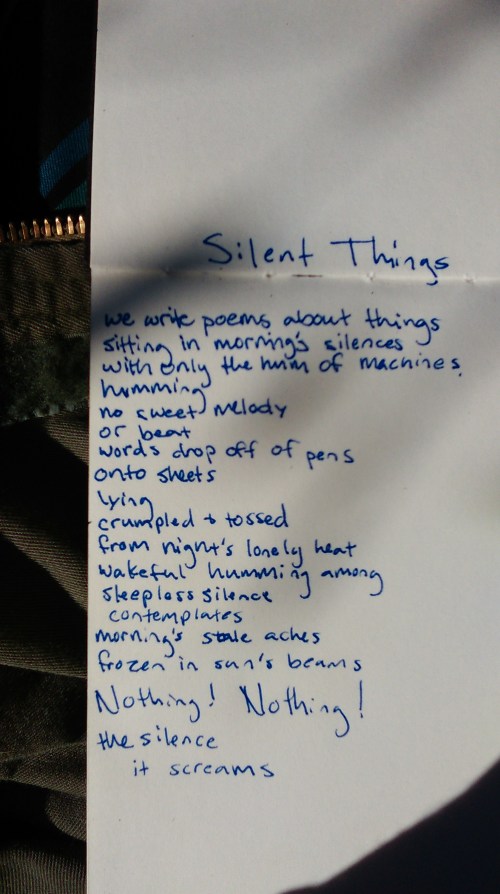 Silent Things
we write poems about things
sitting in morning's silences
with only the hum of machines
humming
no sweet melody
or beat
words drop off of pens
onto sheets
lying
crumpled + tossed
from night's lonely heat
wakeful humming among
sleepless silence
contemplates
morning's stale aches
frozen in sun's beams
Nothing! Nothing!
the silence
it screams